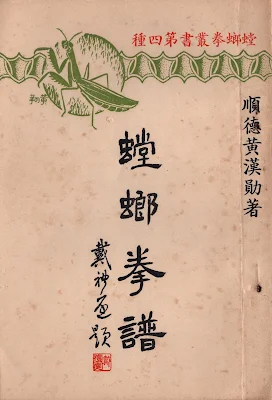 螳螂拳叢書第四種
順德黃漢勛著
螳螂拳譜
戴題